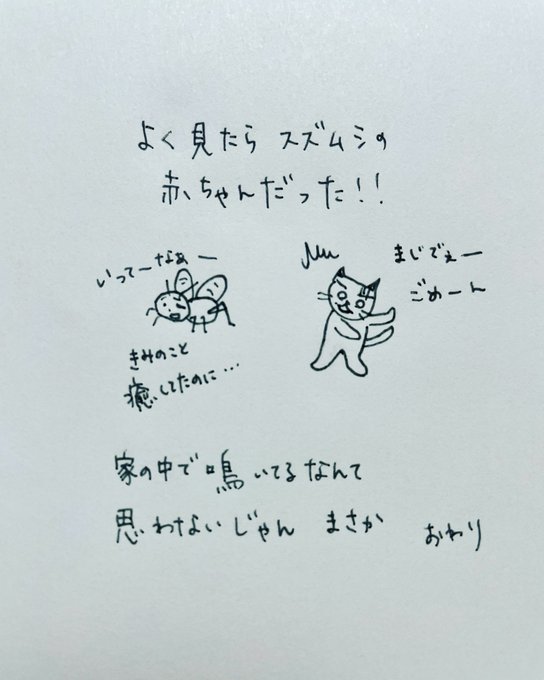 よく見たら スズムシの
赤ちゃんだった!!
いってーなぁー
まじでぇー
ごめーん
きみのこと
癒してたのに…
家の中で鳴いてるなんて
思わないじゃん まさか
おわり